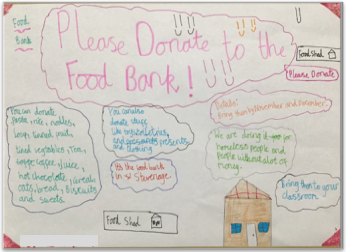 Food
Bank
Please Donate to the
Food Bank!
Food Shed
Please Donate
You can donate
pasta, rice, noodles,
soup, tinned
tinned vegetables, tea,
coffee, juice,
hot chocolate,
oats, bread, biscuits
and sweets
You can also
donate stuff
like
presents
and clothing
It's the food bank
in Stevenage
bring them by November and December
We are doing it for
homeless people and
people without alot of
money.
Bring them to your
classroom
Food Shed